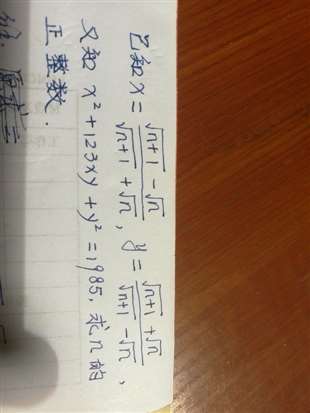 已知 x = (√(n+1) - √n)/(√(n+1) + √n), y = (√(n+1) + √n)/(√(n+1) - √n),
又知 x² + 123xy + y² = 1985, 求 n 的
正整数.